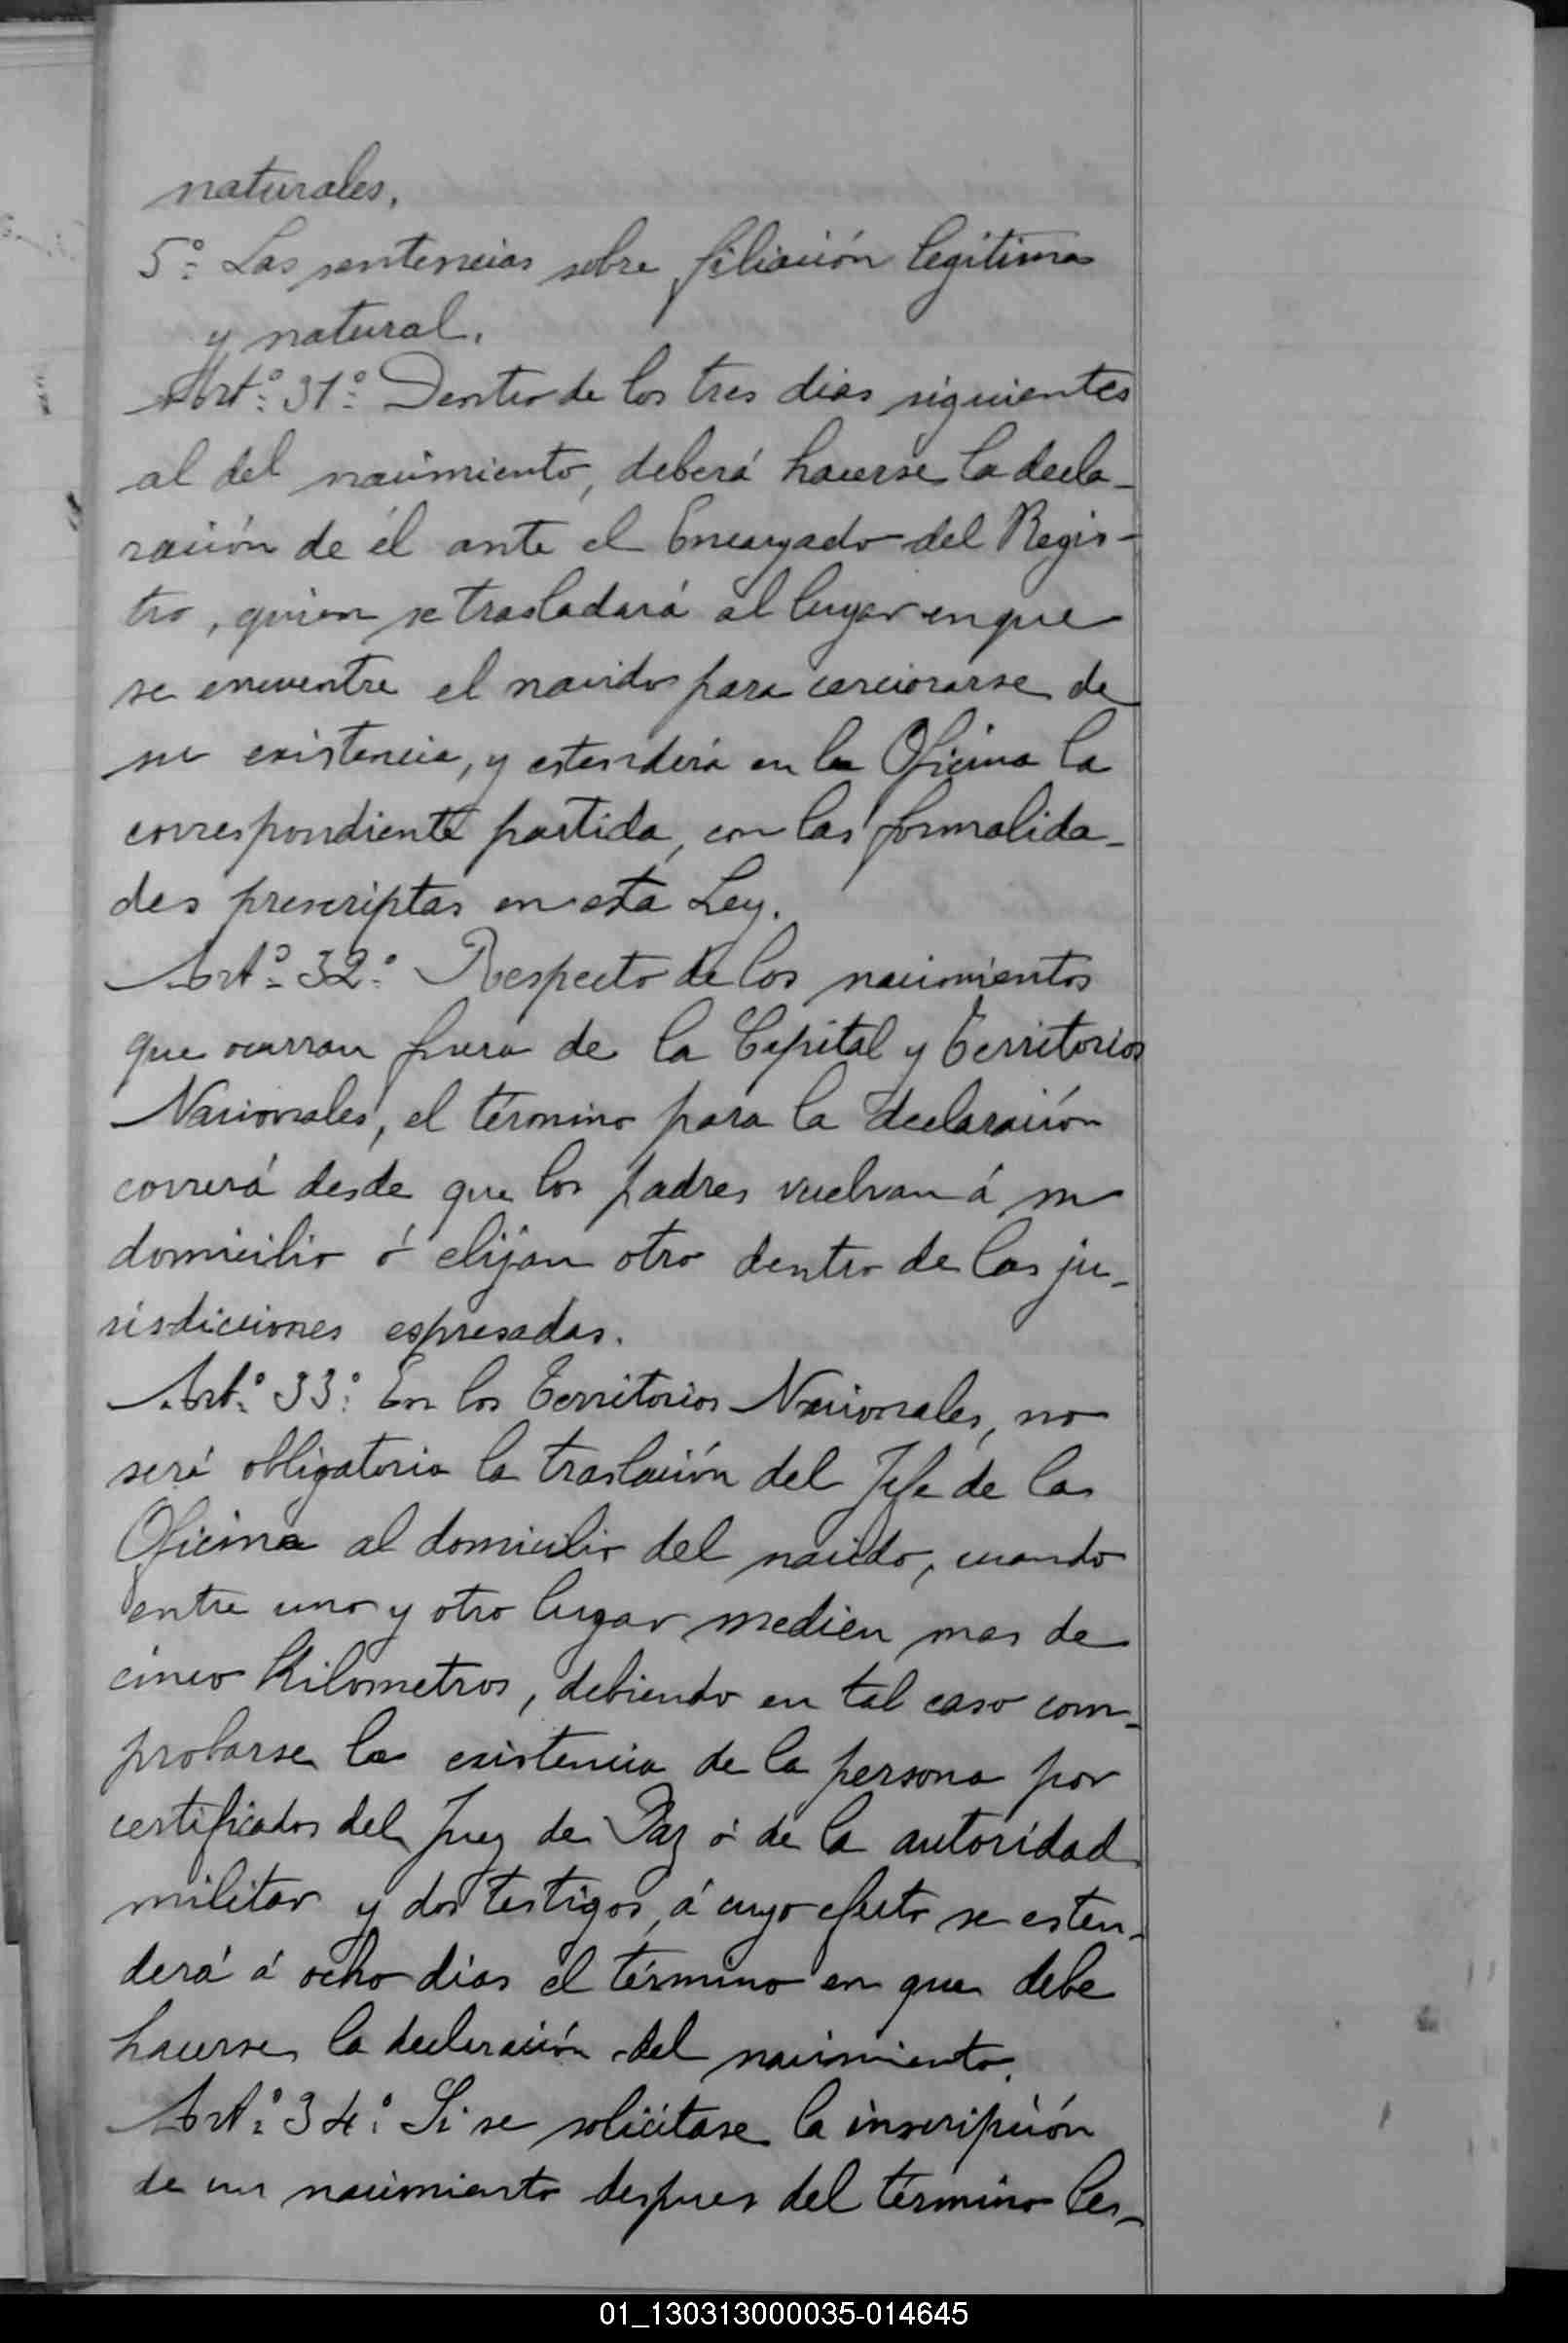 naturales.
5º Las sentencias sobre filiación legítima
y natural.
Artº 31º Dentro de los tres dias siguientes
al del nacimiento, deberá hacerse la decla-
ración de él ante el Encargado del Regis-
tro, quien se trasladará al lugar en que
se encuentre el nacido para cerciorarse de
su existencia, y estenderá en la Oficina la
correspondiente partida, con las formalida-
des prescriptas en esta Ley.
Artº 32º Respecto de los nacimientos
que ocurran fuera de la Capital y Territorios
Nacionales, el término para la declaración
correrá desde que los padres vuelvan á su
domicilio ó elijan otro dentro de las ju-
risdicciones espresadas.
Artº 33º En los Territorios Nacionales, no
será obligatoria la traslación del Jefe de la
Oficina al domicilio del nacido, cuando
entre uno y otro lugar medien mas de
cinco Kilometros, debiendo en tal caso com-
probarse la existencia de la persona por
certificados del Juez de Paz ó de la autoridad
militar y dos testigos, á cuyo efecto se esten-
derá á ocho dias el término en que debe
hacerse la declaración del nacimiento.
Artº 34º Si se solicitase la inscripción
de un nacimiento despues del término le-
01_130313000035-014645